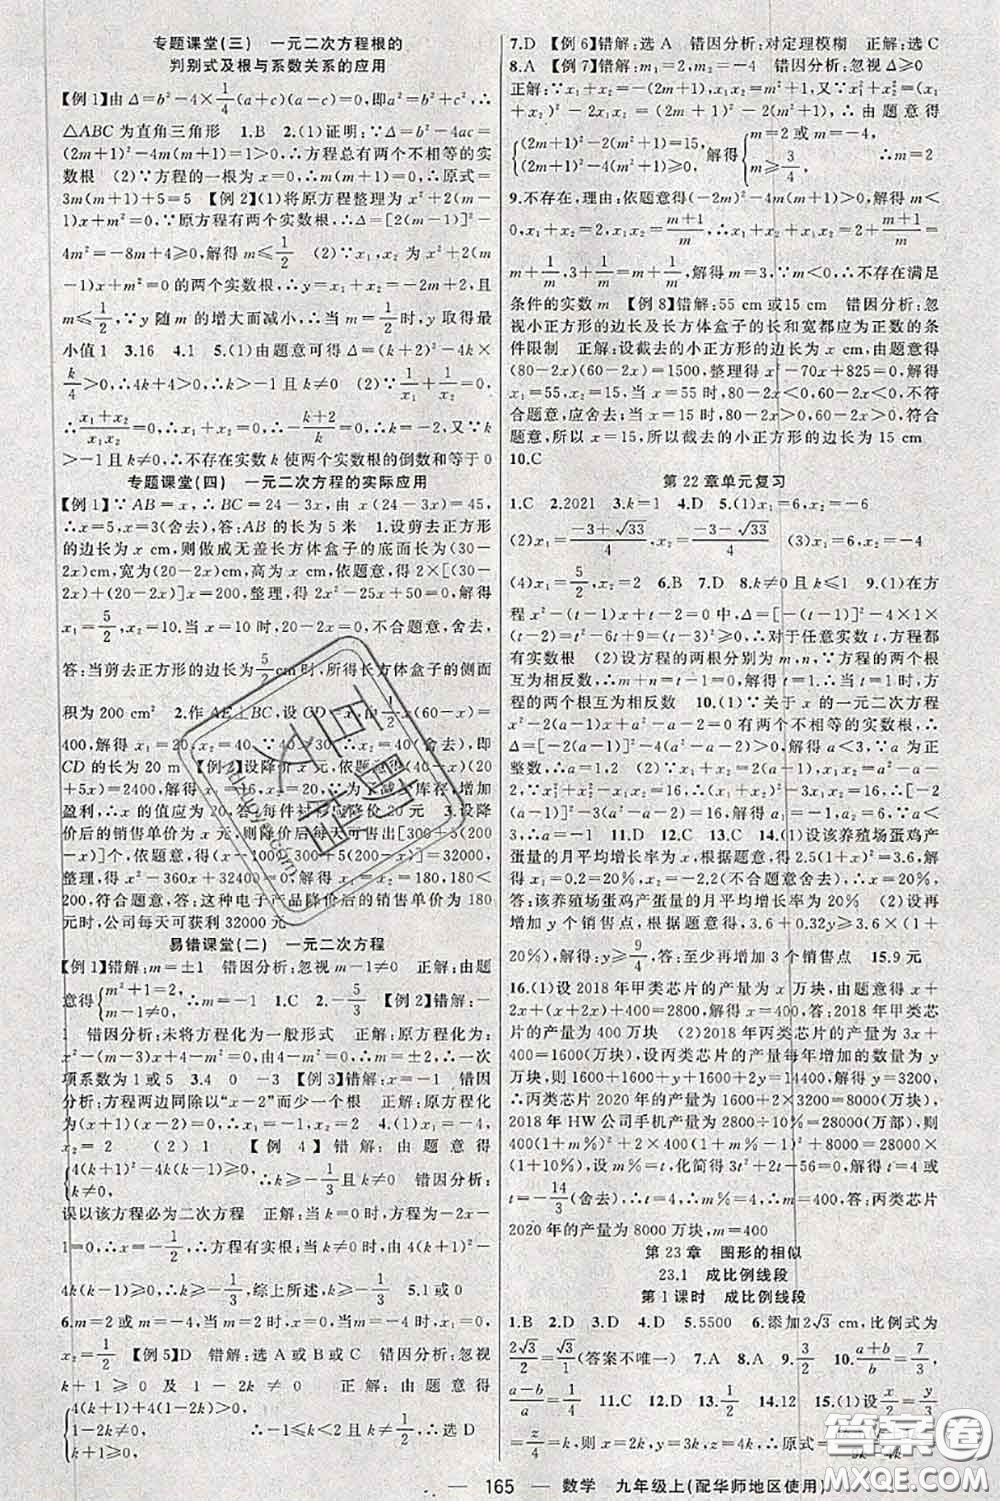 专题课堂(三)　一元二次方程根的
判别式及根与系数关系的应用
【例1】由Δ=b²-4×1/4(a+c)(a-c)=0,即a²=b²+c²,∴
△ABC为直角三角形　1.B　2.(1)证明:∵Δ=b²-4ac=
(2m+1)²-4m(m+1)=1>0,∴方程总有两个不相等的实
数根　(2)∵方程的一根为x=0,∴m(m+1)=0,∴原式=
3m(m+1)+5=5　【例2】(1)将原方程整理为x²+2(m-
1)x+m²=0,∵原方程有两个实数根,∴Δ=[2(m-1)]²-
4m²=-8m+4≥0,解得m≤1/2　(2)∵x₁,x₂为x²+2(m
-1)x+m²=0的两个实数根,∴y=x₁+x₂=-2m+2,且
m≤1/2,∵y随m的增大而减小,∴当m=1/2时,y取得最
小值1　3.16　4.1　5.(1)由题意可得Δ=(k+2)²-4k×
k/4>0,∴4k+4>0,∴k>-1且k≠0　(2)∵1/x₁+1/x₂=0,
∴(x₁+x₂)/(x₁x₂)=0,∴x₁+x₂=0,∴-(k+2)/k=0,∴k=-2,又∵k
>-1且k≠0,∴不存在实数k使两个实数根的倒数和等于0
专题课堂(四)　一元二次方程的实际应用
【例1】∵AB=x,∴BC=24-3x,∴x(24-3x)=45,
∴x=5,x=3(舍去),答:AB的长为5米　1.设剪去正方形
的边长为x cm,则做成无盖长方体盒子的底面长为(30-
2x)cm,宽为(20-2x)cm,高为x cm,依题意,得2×[(30-
2x)+(20-2x)]x=200,整理,得2x²-25x+50=0,解得
x₁=5/2,x₂=10.当x=10时,20-2x=0,不合题意,舍去,
答:当剪去正方形的边长为5/2cm时,所得长方体盒子的侧面
积为200 cm²　2.作AE⊥BC,设CD=x,由1/2x(60-x)=
400,解得x₁=20,x₂=40,∵40>30,∴x=40(舍去),即
CD的长为20 m　【例2】设降价x元,依题意得(40-x)(20
+5x)=2400,解得x₁=20,x₂=16,∵为了减少库存,增加
盈利,∴x的值应为20,答:每件衬衫应降价20元　3.设降
价后的销售单价为x元,则降价后每天可售出[300+5(200
-x)]个,依题意,得(x-100)[300+5(200-x)]=32000,
整理,得x²-360x+32400=0,解得x₁=x₂=180,180<
200,符合题意,答:这种电子产品降价后的销售单价为180
元时,公司每天可获利32000元
易错课堂(二)　一元二次方程
【例1】错解:m=±1　错因分析:忽视m-1≠0　正解:由题
意得{m²+1=2,m-1≠0,∴m=-1　1.C　2.-5/3　【例2】错解:-
1　错因分析:未将方程化为一般形式　正解:原方程化为:
x²-(m-3)x+4-m²=0,由4-m²=0,∴m=±2,∴一次
项系数为1或5　3.4　0　-3　【例3】错解:x=-1　错因
分析:方程两边同除以“x-2”而少一个根　正解:原方程化
为(x-2)(x+1)=0,∴x₁=2,x₂=-1　4.(1)x₁=-4,
x₂=2　(2)1　【例4】错解:由题意得
{4(k+1)²-4k(k-1)≥0,k≠0,∴k≥-1/3且k≠0　错因分析:
误以该方程必为二次方程　正解:当k=0时,方程为-2x-1
=0,∴x=-1/2,∴方程有实根,当k≠0时,有4(k+1)²-
4k(k-1)≥0,∴k≥-1/3,综上所述,k≥-1/3　5.1或0
6.m=2或m=-4,当m=2时,x₁=x₂=-1,当m=-4时,x₁=
x₂=1/2　【例5】D　错解:选A或B或C　错因分析:忽视
k+1≥0及1-2k≠0　正解:由题意得
{4(k+1)+4(1-2k)>0,1-2k≠0,k+1≥0,∴-1≤k<2且k≠1/2,∴选D
7.D　【例6】错解:选A　错因分析:对定理模糊　正解:选C
8.A　【例7】错解:m₁=2,m₂=-4　错因分析:忽视Δ≥0
正解:∵x₁+x₂=-(2m-1)=1-2m,x₁x₂=m²+1,又∵x₁²+x₂²=
(x₁+x₂)²-2x₁x₂=15,∴由题意得
{(2m-1)²-2(m²+1)=15,(2m-1)²-4(m²+1)≥0,解得{m=2或m=-4,∴m=2
9.不存在,理由:依题意得(-2m)²-4m(m+1)>0,∴m<
0,x₁+x₂=2,x₁x₂=(m+1)/m,∴x₁+x₂+x₁x₂=2+(m+1)/m=
m+1/m,3+1/m=m+1/m,∴m=3>0,∴不存在满足
条件的实数m　【例8】错解:55 cm或15 cm　错因分析:忽
视小正方形的边长及长方体盒子的长和宽都应为正数的条
件限制　正解:设截去的小正方形的边长为x cm,由题意得
(80-2x)(60-2x)=1500,整理得x²-70x+825=0,解得
x₁=55,x₂=15,当x=55时,80-2x<0,60-2x<0,不符
合题意,应舍去;当x=15时,80-2x>0,60-2x>0,符合
题意,所以x=15,所以截去的小正方形的边长为15 cm
10.C
第22章单元复习
1.C　2.2021　3.k=1　4.D　5.(1)x₁=6,x₂=-6
(2)x₁=(-3+√33)/4,x₂=(-3-√33)/4　(3)x₁=6,x₂=-4
(4)x₁=5/2,x₂=2　6.B　7.D　8.k≠0且k≤1　9.(1)在方
程x²-(t-1)x+t-2=0中,Δ=[-(t-1)]²-4×1×
(t-2)=t²-6t+9=(t-3)²≥0,∴对于任意实数t,方程都
有实数根　(2)设方程的两根分别为m,n,∵方程的两个根
互为相反数,∴m+n=t-1=0,解得t=1,∴当t=1时,方
程的两个根互为相反数　10.(1)∵关于x的一元二次方程
x²-2(a-1)x+a²-a-2=0有两个不相等的实数根,∴
Δ=[-2(a-1)]²-4(a²-a-2)>0,解得a<3,∵a为正
整数,∴a=1,2　(2)∵x₁+x₂=2(a-1),x₁x₂=a²-a-2,
∵x₁²+x₂²-x₁x₂=16,∴(x₁+x₂)²-3x₁x₂=16,∴[-2
(a-1)]²-3(a²-a-2)=16,解得a₁=-1,a₂=6,∵a<
3,∴a=-1　11.D　12.C　13.D　14.(1)设该养殖场蛋鸡产
蛋量的月平均增长率为x,根据题意得2.5(1+x)²=3.6,解
得x₁=0.2=20%,x₂=-2.2(不合题意舍去),∴x=20%,
答:该养殖场蛋鸡产蛋量的月平均增长率为20%　(2)设再
增加y个销售点,根据题意得3.6+0.32y≥3.6×(1+
20%),解得:y≥9/4,答:至少再增加3个销售点　15.9元
16.(1)设2018年甲类芯片的产量为x万块,由题意得x+
2x+(x+2x)+400=2800,解得x=400,答:2018年甲类芯
片的产量为400万块　(2)2018年丙类芯片的产量为3x+
400=1600(万块),设丙类芯片的产量每年增加的数量为y
万块,则1600+1600+y+1600+2y=14400,解得y=3200,
∴丙类芯片2020年的产量为1600+2×3200=8000(万块),
2018年HW公司手机产量为2800÷10%=28000(万部),则
400(1+m%)²+2×400(1+m%-1)²+8000=28000×
(1+10%),设m%=t,化简得3t²+2t-56=0,解得t=4或
t=-14/3(舍去),∴t=4,∴m%=4,∴m=400,答:丙类芯片
2020年的产量为8000万块,m=400
第23章　图形的相似
23.1　成比例线段
第1课时　成比例线段
1.B　2.D　3.D　4.D　5.5500　6.添加2√3 cm,比例式为
2√3/2=√3/1(答案不唯一)　7.A　8.A　9.A　10.(a+b)/b=7/3,
(a-b)/a=1/4　11.C　12.D　13.1/2　14.12　15.(1)设x/2=y/3
=z/4=k,则x=2k,y=3k,z=4k,∴原式=
— 165 —　数学　九年级上(配华师地区使用)
答案圈
MXQE.COM